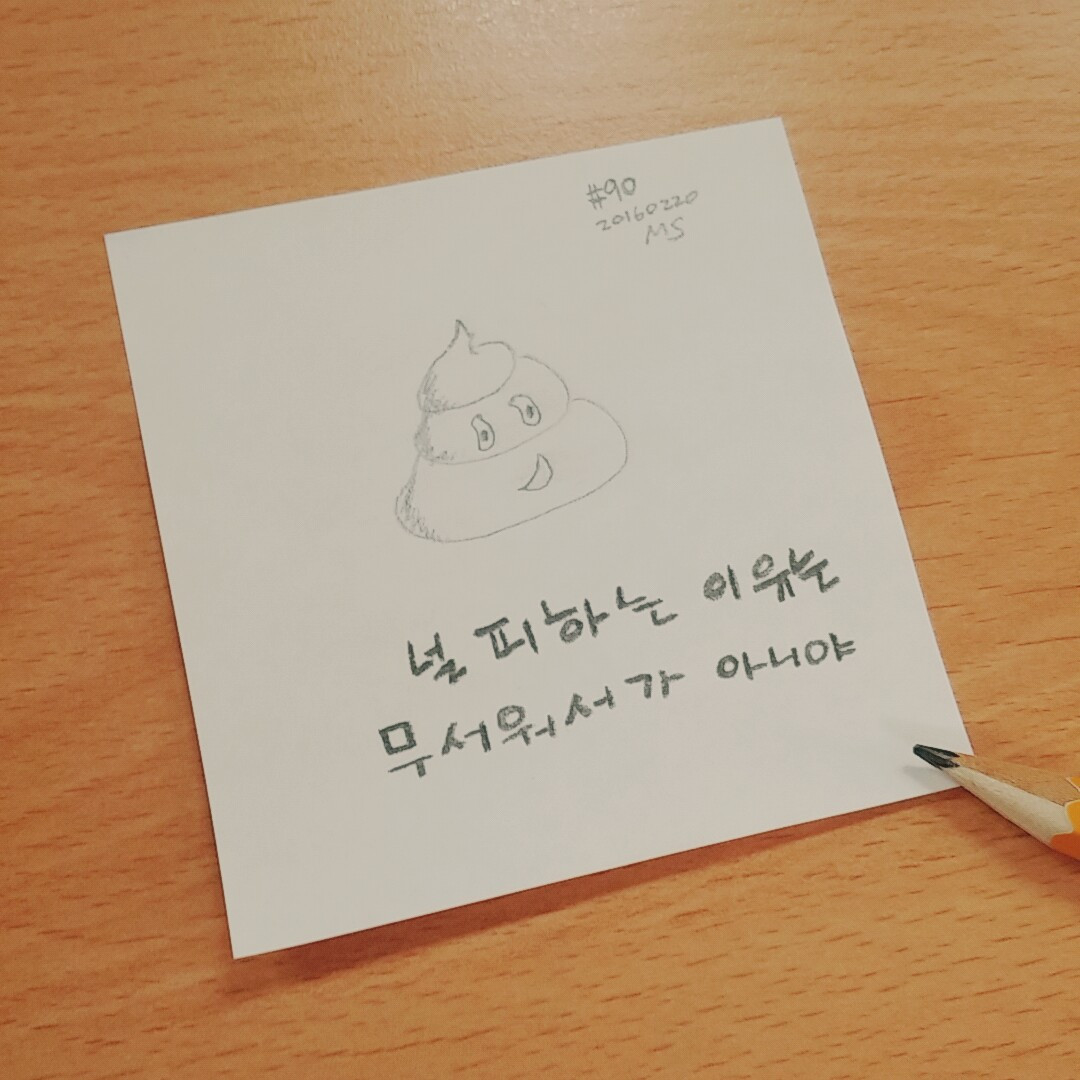 #90
20160220
MS
널 피하는 이유는
무서워서가 아니야